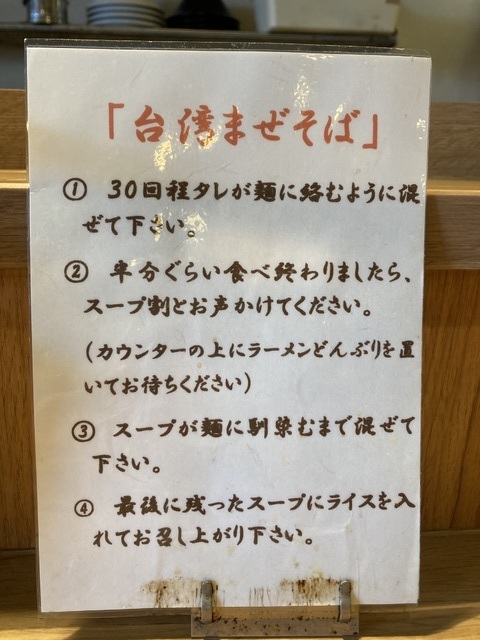 「台湾まぜそば」
① 30回程タレが麺に絡むように混
ぜて下さい。
② 半分ぐらい食べ終わりましたら、
スープ割とお声かけてください。
(カウンターの上にラーメンどんぶりを置
いてお待ちください)
③ スープが麺に馴染むまで混ぜて
下さい。
④ 最後に残ったスープにライスを入
れてお召し上がり下さい。